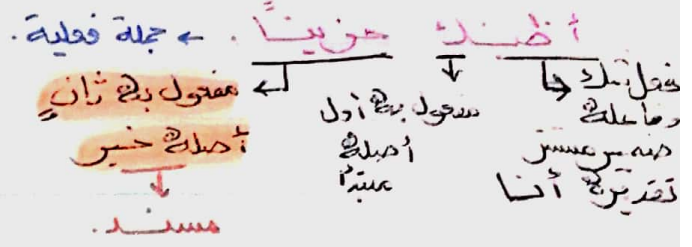 أظنك حزينًا. ← جملة فعلية.
فعل شك
وفاعله
ضمير مستتر
تقديره أنا
مفعول به أول
أصله
مبتدأ
مفعول به ثانٍ
أصله خبر
مسند.